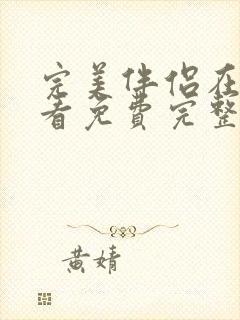 完美伴侣在
看免费完整
黄婧